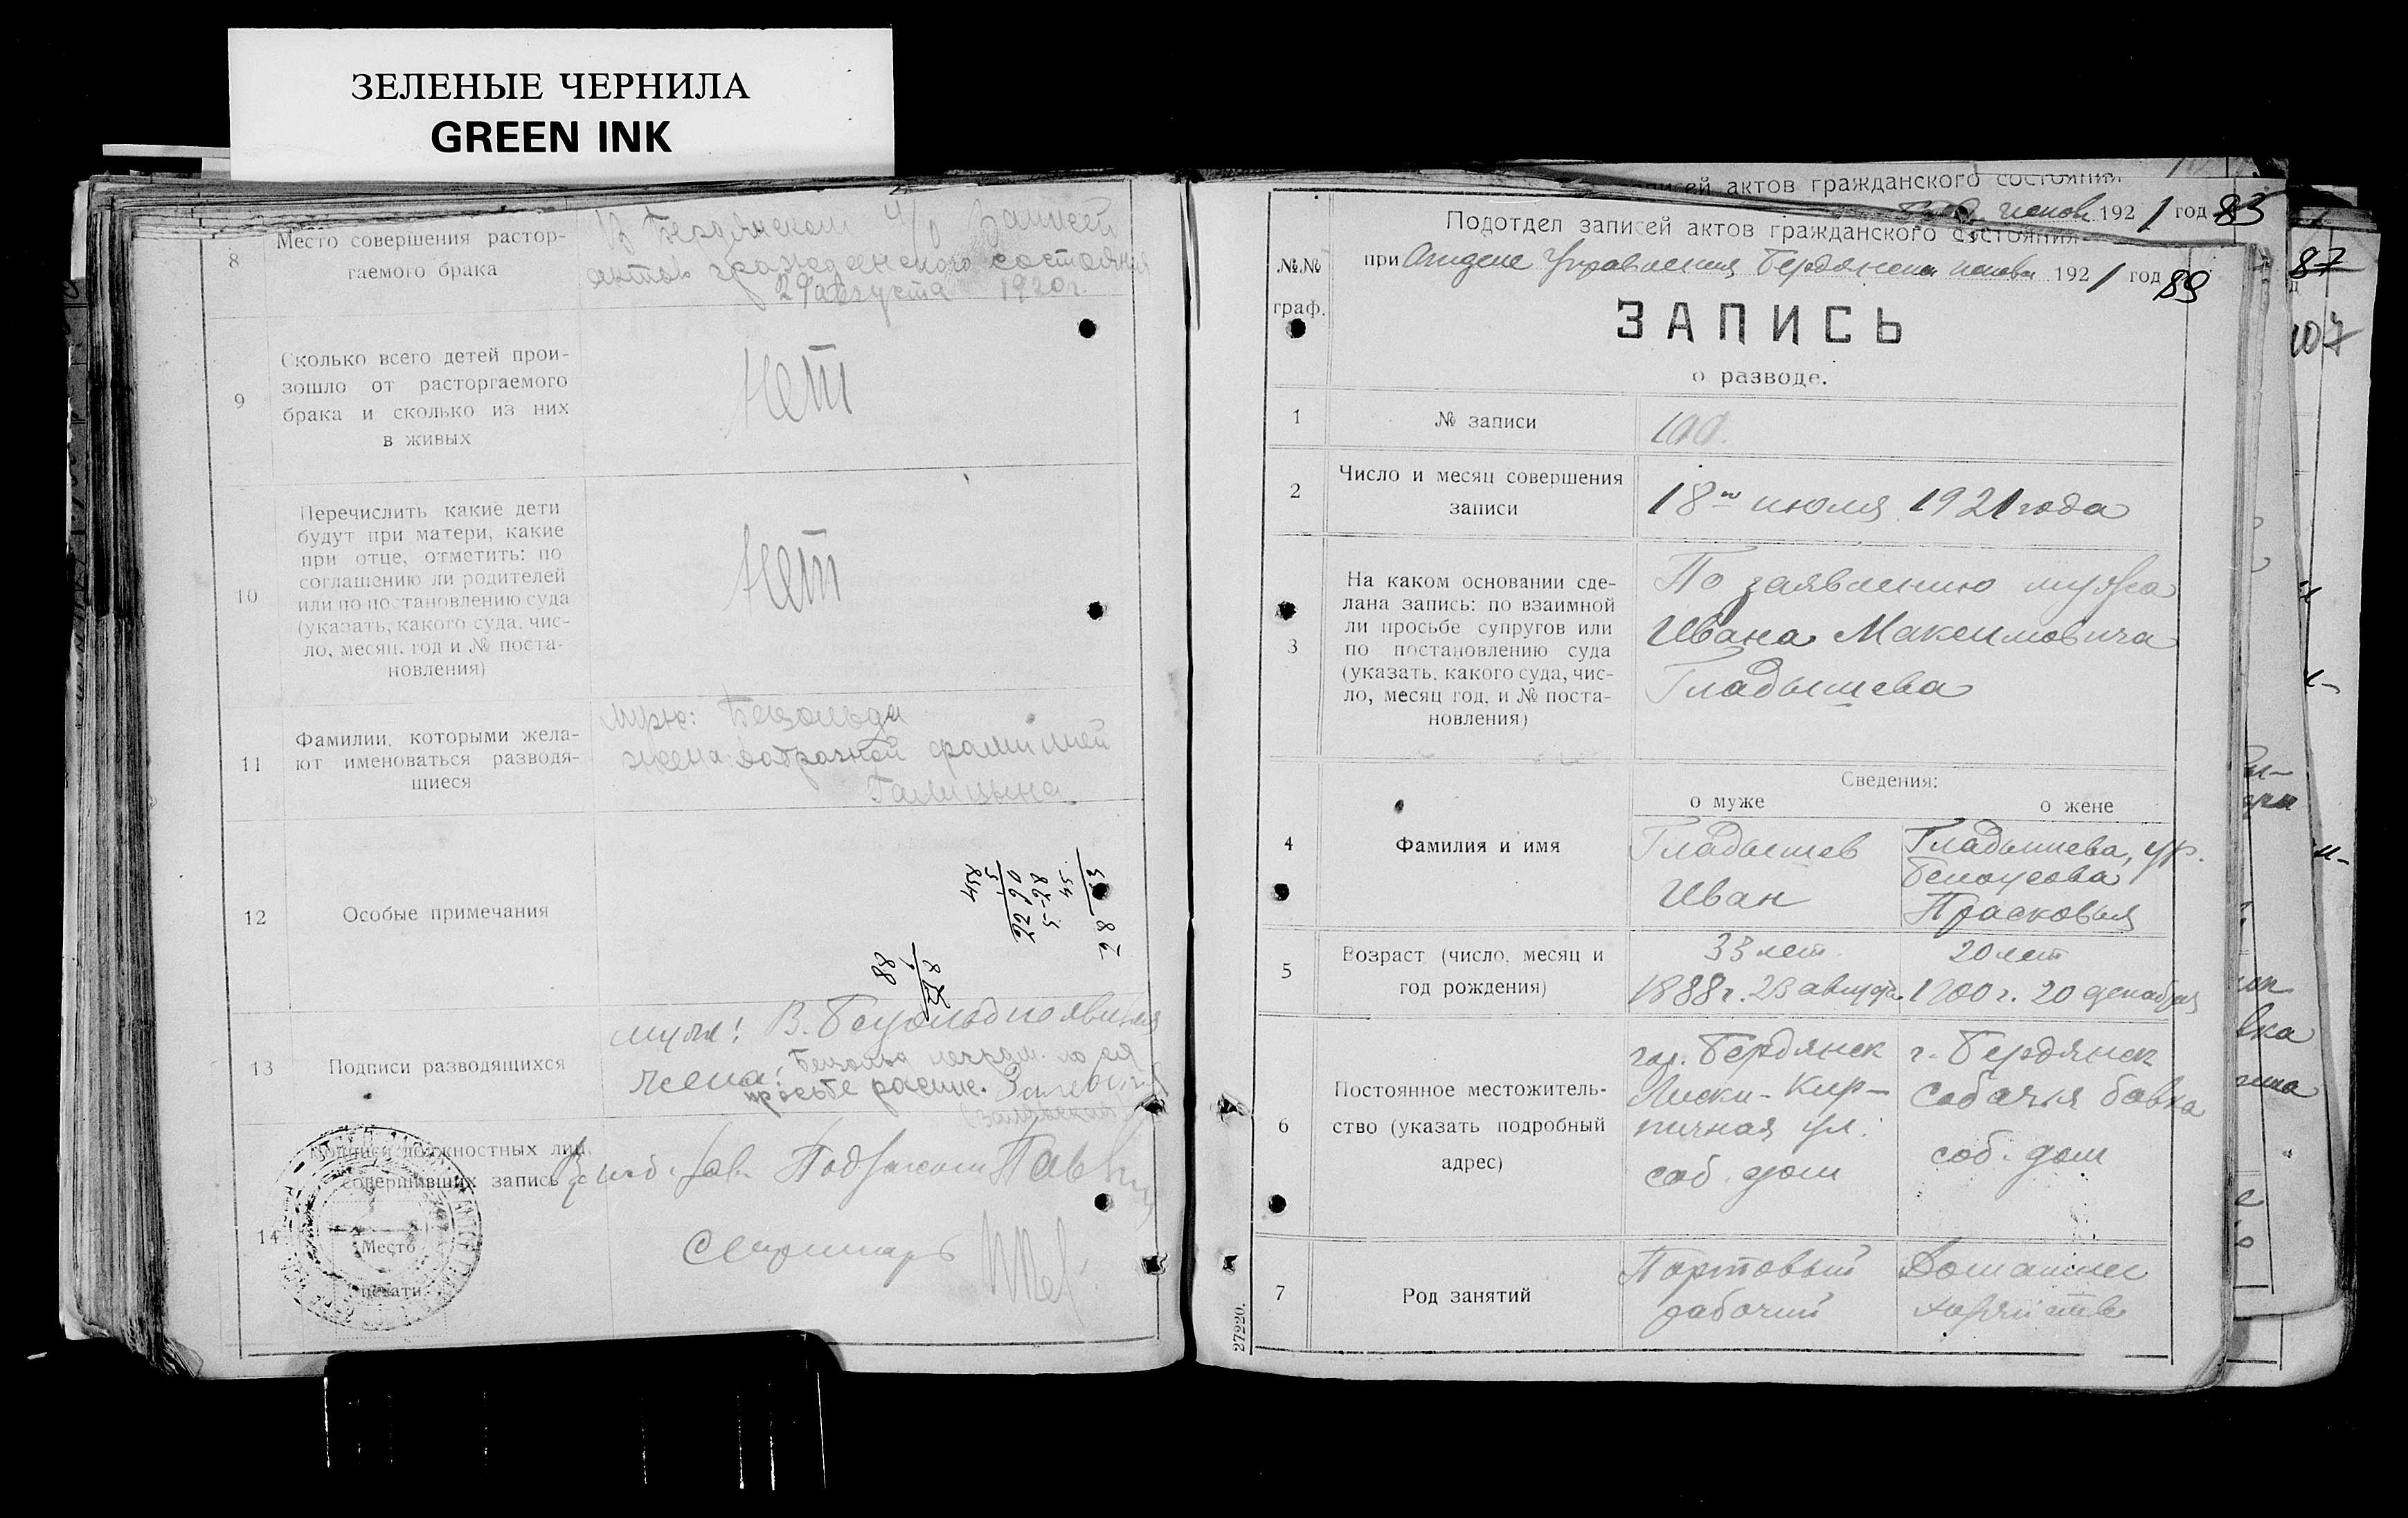 ЗЕЛЕНЫЕ ЧЕРНИЛА
GREEN INK
8
Место совершения растор-
гаемого брака
В Бердянском п/о Записей
актов гражданского состояния
29 августа 1920 г.
9
Сколько всего детей прои-
зошло от расторгаемого
брака и сколько из них
в живых
Нет
10
Перечислить какие дети
будут при матери, какие
при отце, отметить: по
соглашению ли родителей
или по постановлению суда
(указать, какого суда, чис-
ло, месяц, год и № поста-
новления)
Нет
11
Фамилии, которыми жела-
ют именоваться разводя-
щиеся
Бецольда
жена: добрачной фамилией
Галицына
12
Особые примечания
13
Подписи разводящихся
муж: В. Бецольд
жена: Бецольд неграм. по ея
просьбе распис.
14
Подписи должностных лиц,
совершивших запись
Место
печати
Секретарь
записей актов гражданского состояния
192 1 год 85
Подотдел записей актов гражданского состояния
при Отделе Управления Бердянск 192 1 год 89
№№
граф.
ЗАПИСЬ
о разводе.
1
№ записи
100.
2
Число и месяц совершения
записи
18го июля 1921 года
3
На каком основании сде-
лана запись: по взаимной
ли просьбе супругов или
по постановлению суда
(указать, какого суда, чис-
ло, месяц год, и № поста-
новления)
По заявлению мужа
Ивана Максимовича
Гладышева
Сведения:
о муже
о жене
4
Фамилия и имя
Гладышев
Иван
Гладышева, ур.
Белоусова
Прасковья
5
Возраст (число, месяц и
год рождения)
33 лет
1888 г. 23 августа
20 лет
1900 г. 20 декабря
6
Постоянное местожитель-
ство (указать подробный
адрес)
гор. Бердянск
Лиски-Кир-
пичная ул.
соб. дом
г. Бердянск
Собачья балка
соб. дом
7
Род занятий
Портовый
рабочий
Домашнее
хозяйство
27220.
87
107